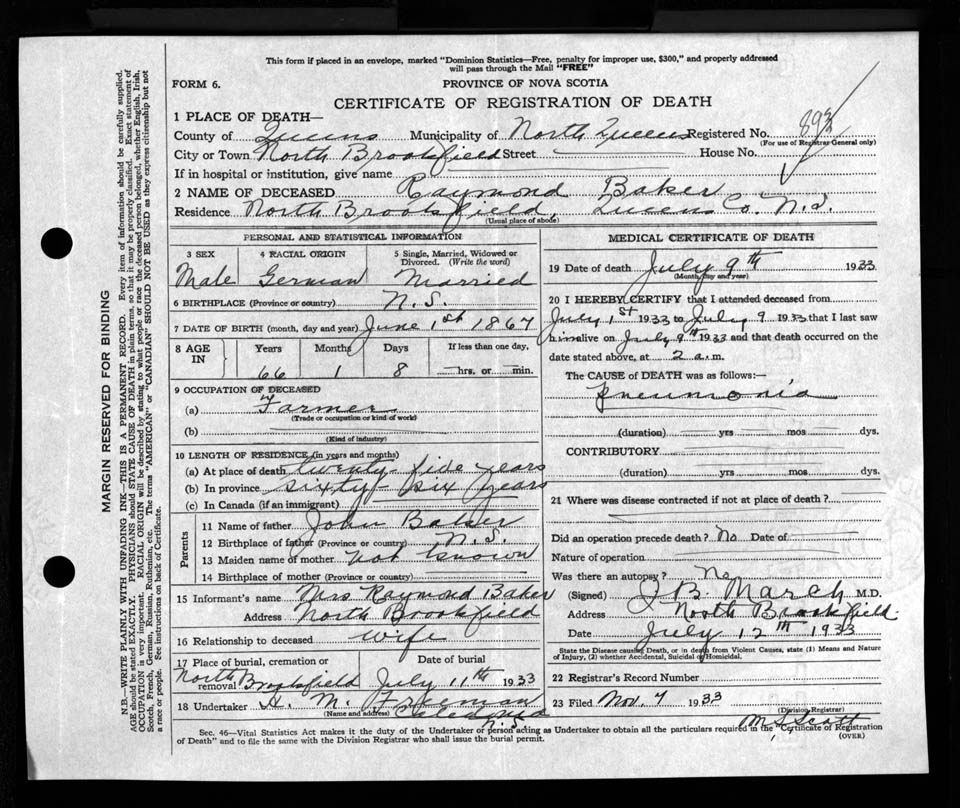 This form if placed in an envelope, marked "Dominion Statistics—Free, penalty for improper use, $300," and properly addressed
will pass through the Mail "FREE"
FORM 6.
PROVINCE OF NOVA SCOTIA
CERTIFICATE OF REGISTRATION OF DEATH
1 PLACE OF DEATH—
County of Queens Municipality of North Queens Registered No. 893
(For use of Registrar General only)
City or Town North Brookfield Street House No.
If in hospital or institution, give name
2 NAME OF DECEASED Raymond Baker
Residence North Brookfield, Queens Co. N.S.
(Usual place of abode)
PERSONAL AND STATISTICAL INFORMATION
3 SEX 4 RACIAL ORIGIN 5 Single, Married, Widowed or Divorced. (Write the word)
Male German Married
6 BIRTHPLACE (Province or country) N.S.
7 DATE OF BIRTH (month, day and year) June 1st 1867
8 AGE IN Years Months Days If less than one day,
66 1 8 hrs. or min.
9 OCCUPATION OF DECEASED
(a) Farmer
(Trade or occupation or kind of work)
(b)
(Kind of industry)
10 LENGTH OF RESIDENCE (in years and months)
(a) At place of death twenty-five years
(b) In province sixty-six years
(c) In Canada (if an immigrant)
Parents
11 Name of father John Baker
12 Birthplace of father (Province or country) N.S.
13 Maiden name of mother not known
14 Birthplace of mother (Province or country)
15 Informant's name Mrs Raymond Baker
Address North Brookfield
16 Relationship to deceased wife
17 Place of burial, cremation or removal Date of burial
North Brookfield July 11th 1933
18 Undertaker H. M. Freeman
(Name and address) Caledonia
N.S.
MEDICAL CERTIFICATE OF DEATH
19 Date of death July 9th 1933
(Month, day and year)
20 I HEREBY CERTIFY that I attended deceased from
July 1st 1933 to July 9 1933 that I last saw
him alive on July 9th 1933 and that death occurred on the
date stated above, at 2 a.m.
The CAUSE of DEATH was as follows:—
Pneumonia
(duration) yrs mos dys.
CONTRIBUTORY
(duration) yrs mos dys.
21 Where was disease contracted if not at place of death?
Did an operation precede death? No Date of
Nature of operation
Was there an autopsy? No
(Signed) J B. March M.D.
Address North Brookfield.
Date July 12th 1933
State the Disease causing Death, or in death from Violent Causes, state (1) Means and Nature
of Injury, (2) whether Accidental, Suicidal or Homicidal.
22 Registrar's Record Number
23 Filed Nov. 7 1933
(Division Registrar)
M S Scott
Sec. 46—Vital Statistics Act makes it the duty of the Undertaker or person acting as Undertaker to obtain all the particulars required in the "Certificate of Registration
of Death" and to file the same with the Division Registrar who shall issue the burial permit.
(OVER)
MARGIN RESERVED FOR BINDING
N.B.—WRITE PLAINLY WITH UNFADING INK—THIS IS A PERMANENT RECORD. Every item of information should be carefully supplied.
AGE should be stated EXACTLY. PHYSICIANS should STATE CAUSE OF DEATH in plain terms, so that it may be properly classified. Exact statement of
OCCUPATION is very important. RACIAL ORIGIN will be described by stating to what people or race the deceased person belonged, whether English, Irish,
Scotch, French, German, Russian, Ruthenian, etc. The terms "AMERICAN" or "CANADIAN" SHOULD NOT BE USED as they express citizenship but not
a race or people. See instructions on back of Certificate.